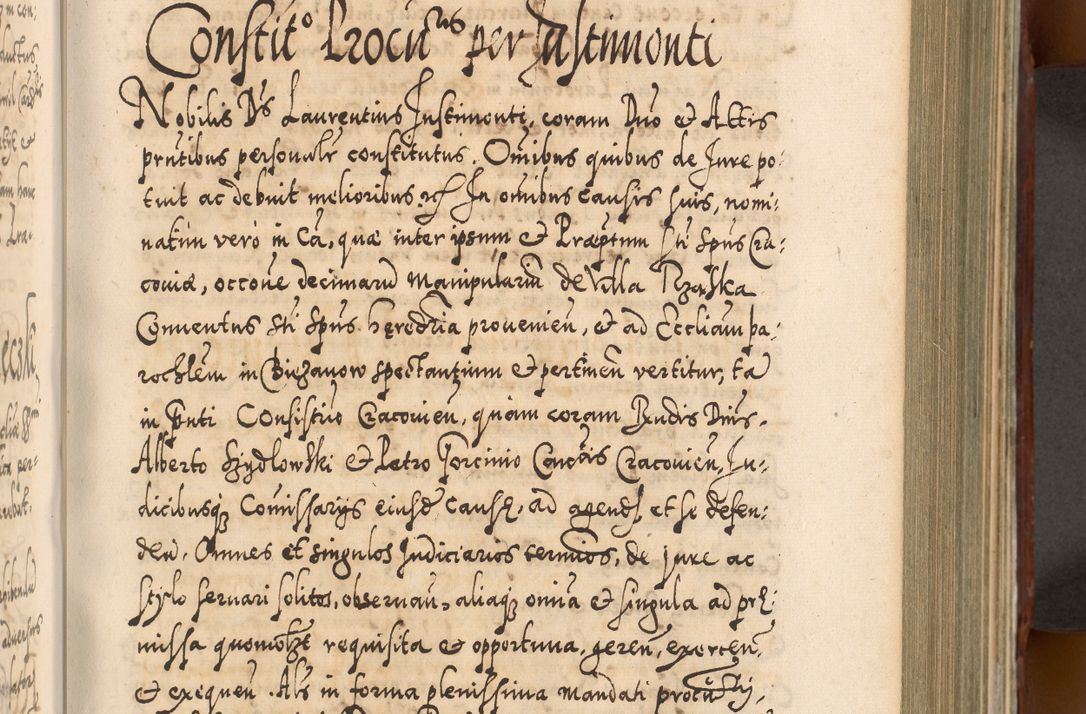 Constit⁰ Procu^ris per Justimonti
Nobilis Dns Laurentius Justimonti, coram Dno et Actis
pntibus personalr constitutus. Omibus quibus de Jure po:
tuit ac debuit melioribus In omibus causis suis, nomi:
natim vero in Ca, quæ inter ipsum et Præptum Sti Spus Cra:
coviæ, occone decimaru manipulariu de Villa Rzaska
Conventus Sti Spus heredria provenien, et ad Eccliam pa:
rochlem in Biezanow spectantium et pertinen vertitur, ta
in pnti Consistrio Cracovien, quam coram Rndis Dnis.
Alberto Szydlowski et Petro Gorcinio Cancris Cracovien, Ju:
dicibusq Comissarijs eiusd causæ, ad agend, et se defen:
den. Omnes et singulos Judiciarios terminos, de jure ac
stylo servari solitos, observan, aliaq omia et singula ad præ:
missa quomolzt requisita et opportuna, geren, exercen,
et exequen. Als in forma plenissima mandati procurij,